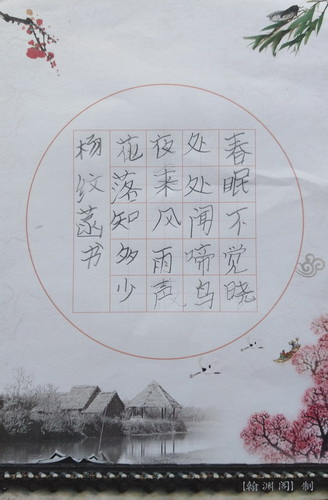 春眠不觉晓
处处闻啼鸟
夜来风雨声
花落知多少
杨纹菡书
【翰渊阁】制